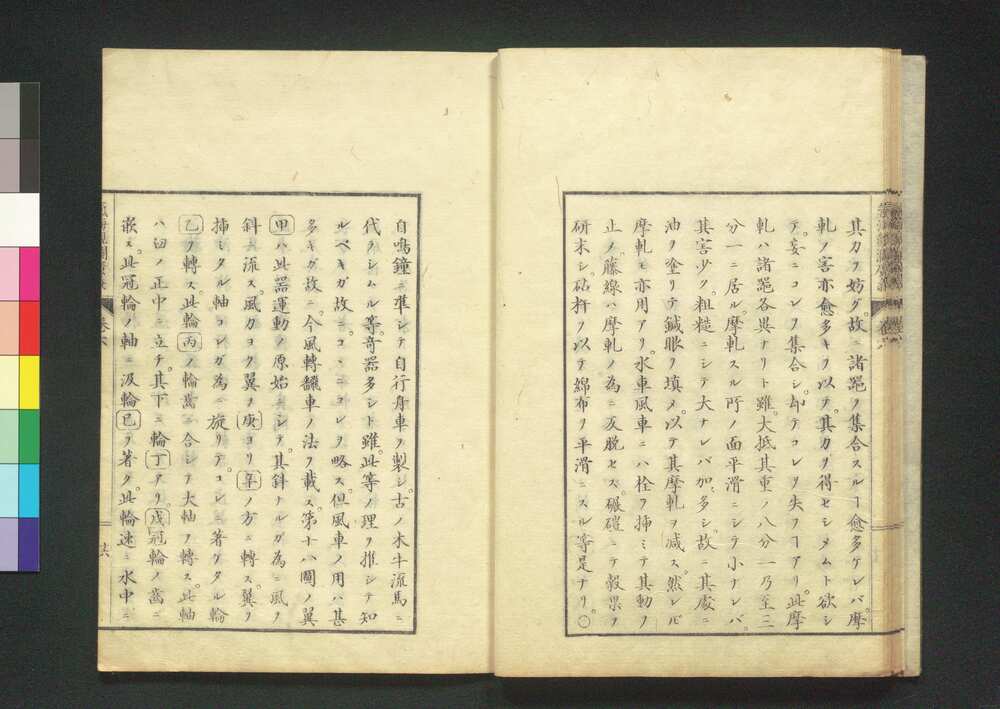 其力ヲ妨グ。故ニ諸器ヲ集合スルヿ愈多ケレバ、摩
軋ノ害亦愈多キヲ以テ。其力ヲ得セシメムト欲シ
テ。妄ニコレヲ集合シ。却テコレヲ失フヿアリ。此摩
軋ハ諸器各異ナリト雖。大抵其重ノ八分一乃至三
分一ニ居ル。摩軋スル所ノ面平滑ニシテ小ナレバ。
其害少ク。粗糙ニシテ大ナレバ加多シ。故ニ其處ニ
油ヲ塗リテ鍼眼ヲ填メ。以テ其摩軋ヲ減ス。然レ𪜈
摩軋モ亦用アリ。水車風車ニハ栓ヲ挿ミテ其動ヲ
止ノ。藤線ハ摩軋ノ為ニ及脱セス。碾磑ニテ穀果ヲ
研末シ。砧杵ヲ以テ綿布ヲ平滑ニスル等是ナリ。〇
自鳴鐘ニ準シテ自行舟車ヲ製シ。古ノ木牛流馬ニ
代ラシムル等。奇器多シト雖。此等ノ理ヲ推シテ知
ルベキガ故ニ。コヽニコレヲ略ス。但風車ノ用ハ甚
多キガ故ニ。今風轉䊶車ノ法ヲ載ス。第十八圖ノ翼
甲ハ此器運動ノ原始ニシテ。其斜ナルガ為ニ風ノ
斜ニ流ス。風カコク翼ヲ庚ヨリ辛ノ方ニ轉ス。翼ヲ
挿ミタル軸コレガ為ニ旋リテ。コレニ著ケタル輪
乙ヲ轉ス。此輪丙ノ輪齒ニ合シテ大軸ヲ轉ス。此軸
ハ臼ノ正中ニ立チ。其下ニ輪丁アリ。戊冠輪ノ齒ニ
嵌ス。此冠輪ノ軸ニ汲輪己ヲ著ク。此輪速ニ水中ニ
卷六